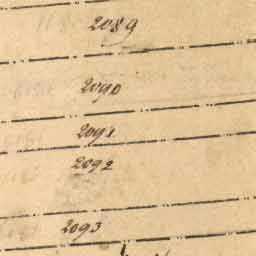 2089
2090
2091
2092
2093